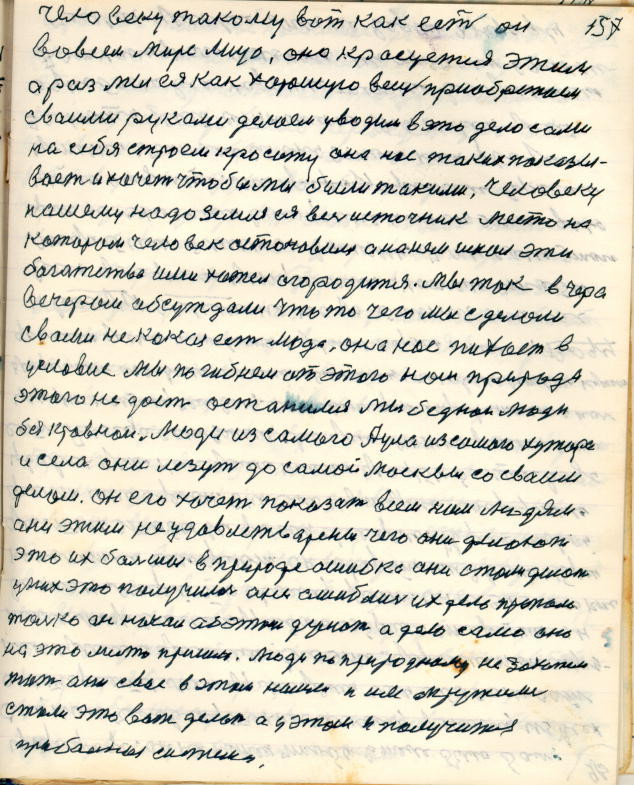 157
человеку такому вот как ест он
вовсем мире лицо, оно красуется этим
а раз мы ся как хорошую вещ приобретаем
своими руками делаем уводим в это дело сами
на себя строем красоту она нас таких показы-
вает и хочет чтобы мы были такими, человеку
нашему надо земля ся вся источник место на
котором человек остановился а на нем эти
богатства или хотел огородится. Мы так вчера
вечером обсуждали что то чего мы сделали
с вами не какая ест мода, она нас пихает в
условие мы погибнем от этого нам природа
этого не даст остались мы бедном люди
без кровном. Люди из самого Аула из самого хутора
и села они лезут до самой Москвы со своим
делом. он его хочет показат всем нам людям.
они этим неудовлетварены чего они делают
это их в природе ошибка они стали делат
у них это получилос они ошиблис их дело пропало
толко он начал об этом думат а дело само оно
на это место пришло. Люди по природному не захотели
тот они свое в этом нашли и им окружили
стали это вот делат а у этом и получится